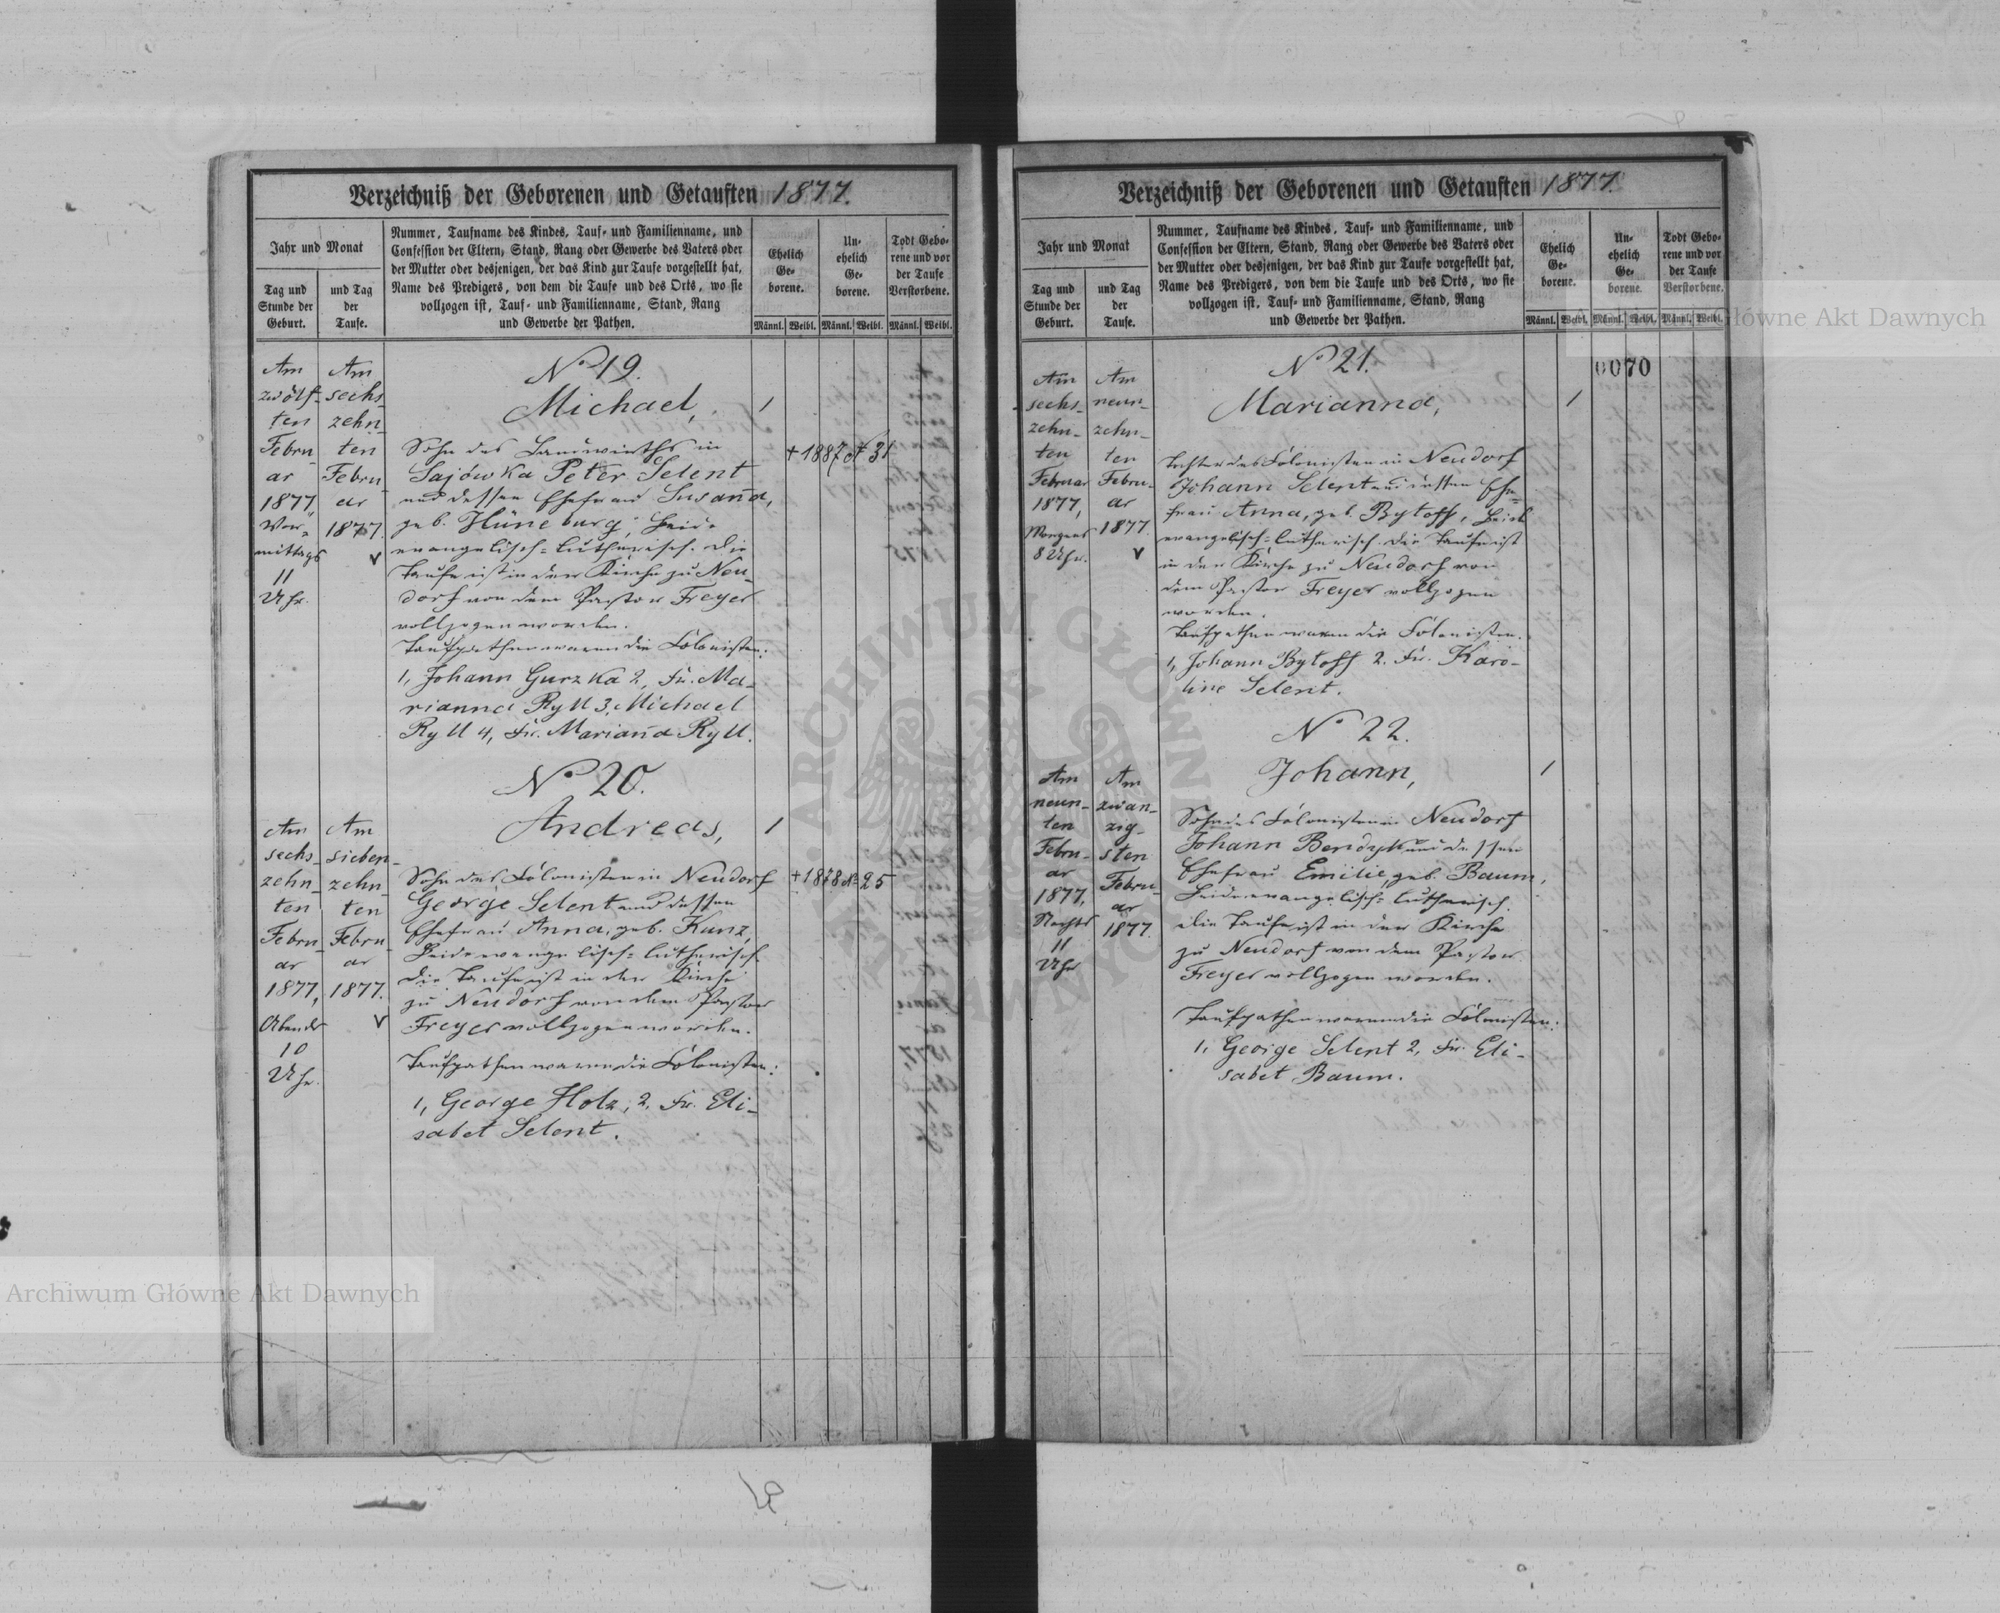 Verzeichniß der Geborenen und Getauften 1877.
Jahr und Monat
Tag und
Stunde der
Geburt.
und Tag
der
Taufe.
Nummer, Taufname des Kindes, Tauf- und Familienname, und
Confession der Eltern, Stand, Rang oder Gewerbe des Vaters oder
der Mutter oder desjenigen, der das Kind zur Taufe vorgestellt hat,
Name des Predigers, von dem die Taufe und des Orts, wo sie
vollzogen ist, Tauf- und Familienname, Stand, Rang
und Gewerbe der Pathen.
Ehelich
Ge-
borene.
Un-
ehelich
Ge-
borene.
Todt Gebo-
rene und vor
der Taufe
Verstorbene.
Männl. Weibl. Männl. Weibl. Männl. Weibl.
Am
zwölf-
ten
Febru-
ar
1877,
Vor-
mittags
11
Uhr.
Am
sechs-
zehn-
ten
Febru-
ar
1877.
N° 19.
Michael,
Sohn des Landwirths in
Sajówka Peter Selent
und dessen Ehefrau Susanna,
geb. Hüneburg; beide
evangelisch-lutherisch. Die
Taufe ist in der Kirche zu Neu-
dorf von dem Pastor Freyer
vollzogen worden.
Taufpathen waren die Colonisten:
1, Johann Gurzka 2, Fr. Ma-
rianna Ryll 3, Michael
Ryll 4, Fr. Marianna Ryll.
1
+ 1887 N 31
Am
sechs-
zehn-
ten
Febru-
ar
1877,
Abends
10
Uhr.
Am
sieben-
zehn-
ten
Febru-
ar
1877.
N° 20.
Andreas,
Sohn des Colonisten in Neudorf
George Selent und dessen
Ehefrau Anna, geb. Kunz,
Beide evangelisch-lutherisch.
Die Taufe ist in der Kirche
zu Neudorf von dem Pastor
Freyer vollzogen worden.
Taufpathen waren die Colonisten:
1, George Holz, 2, Fr. Eli-
sabet Selent.
1
+ 1878 N 25
Verzeichniß der Geborenen und Getauften 1877.
Jahr und Monat
Tag und
Stunde der
Geburt.
und Tag
der
Taufe.
Nummer, Taufname des Kindes, Tauf- und Familienname, und
Confession der Eltern, Stand, Rang oder Gewerbe des Vaters oder
der Mutter oder desjenigen, der das Kind zur Taufe vorgestellt hat,
Name des Predigers, von dem die Taufe und des Orts, wo sie
vollzogen ist, Tauf- und Familienname, Stand, Rang
und Gewerbe der Pathen.
Ehelich
Ge-
borene.
Un-
ehelich
Ge-
borene.
Todt Gebo-
rene und vor
der Taufe
Verstorbene.
Männl. Weibl. Männl. Weibl. Männl. Weibl.
0070
Am
sechs-
zehn-
ten
Februar
1877,
Morgens
8 Uhr.
Am
neun-
zehn-
ten
Febru-
ar
1877.
N° 21.
Marianna,
Tochter des Colonisten in Neudorf
Johann Selent und dessen Ehe-
frau Anna, geb. Bytoff, Beide
evangelisch-lutherisch. Die Taufe ist
in der Kirche zu Neudorf von
dem Pastor Freyer vollzogen
worden.
Taufpathen waren die Colonisten.
1, Johann Bytoff 2. Fr. Karo-
line Selent.
1
Am
neun-
ten
Febru-
ar
1877,
Nachts
11
Uhr
Am
zwan-
zig-
sten
Febru-
ar
1877.
N° 22.
Johann,
Sohn des Colonisten in Neudorf
Johann Bendzyk und dessen
Ehefrau Emilie, geb. Baum,
Beide evangelisch-lutherisch.
Die Taufe ist in der Kirche
zu Neudorf von dem Pastor
Freyer vollzogen worden.
Taufpathen waren die Colonisten:
1, George Selent 2, Fr. Eli-
sabet Baum.
1
Archiwum Główne Akt Dawnych
Główne Akt Dawnych
ARCHIWUM GŁÓWNE AKT DAWNYCH